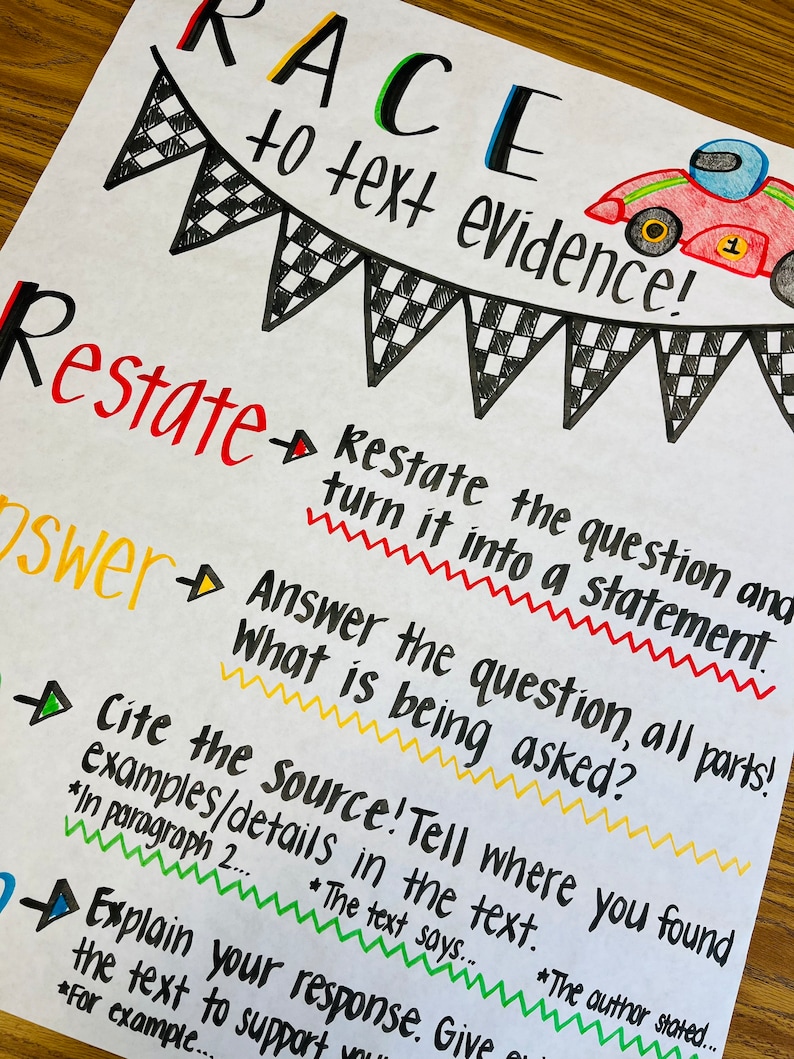 RACE
to text evidence!
1
Restate
Restate the question and
turn it into a statement.
Answer the question, all parts!
What is being asked?
Cite the source! Tell where you found
examples/details in the text.
*In paragraph 2... *The text says... *The author stated...
Explain your response. Give
the text to support
*For example...